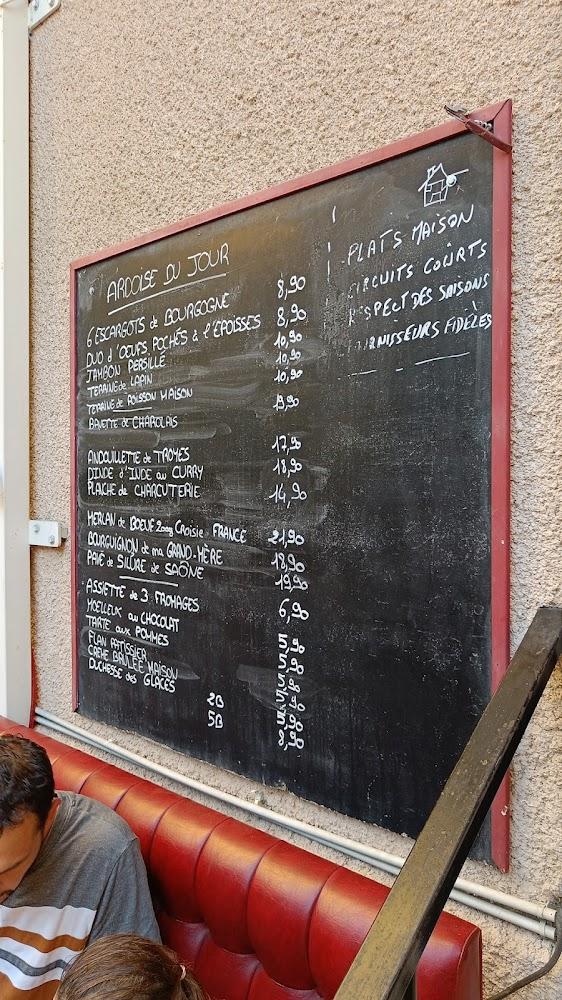 ARDOISE DU JOUR
6 ESCARGOTS de BOURGOGNE 8,90
DUO d'OEUFS POCHÉS à l'EPOISSES 8,90
JAMBON PERSILLÉ 10,90
TERRINE de LAPIN 10,90
TERRINE de POISSON MAISON 10,90
BAVETTE de CHAROLAIS 19,90
ANDOUILLETTE de TROYES 17,90
DINDE d'INDE au CURRY 18,90
PLANCHE de CHARCUTERIE 14,90
MERLAN de BOEUF 200g Croisie FRANCE 21,90
BOURGUIGNON de ma GRAND-MÈRE 18,90
PAVÉ de SILURE de SAÔNE 19,90
ASSIETTE de 3 FROMAGES 6,90
MOELLEUX au CHOCOLAT 5,90
TARTE aux POMMES 5,90
FLAN PATISSIER 5,90
CRÈME BRULÉE MAISON 5,90
DUCHESSE des GLACES 2B 5,90
5B 8,90
PLATS MAISON
CIRCUITS COÛRTS
RESPECT DES SAISONS
FOURNISSEURS FIDÈLES